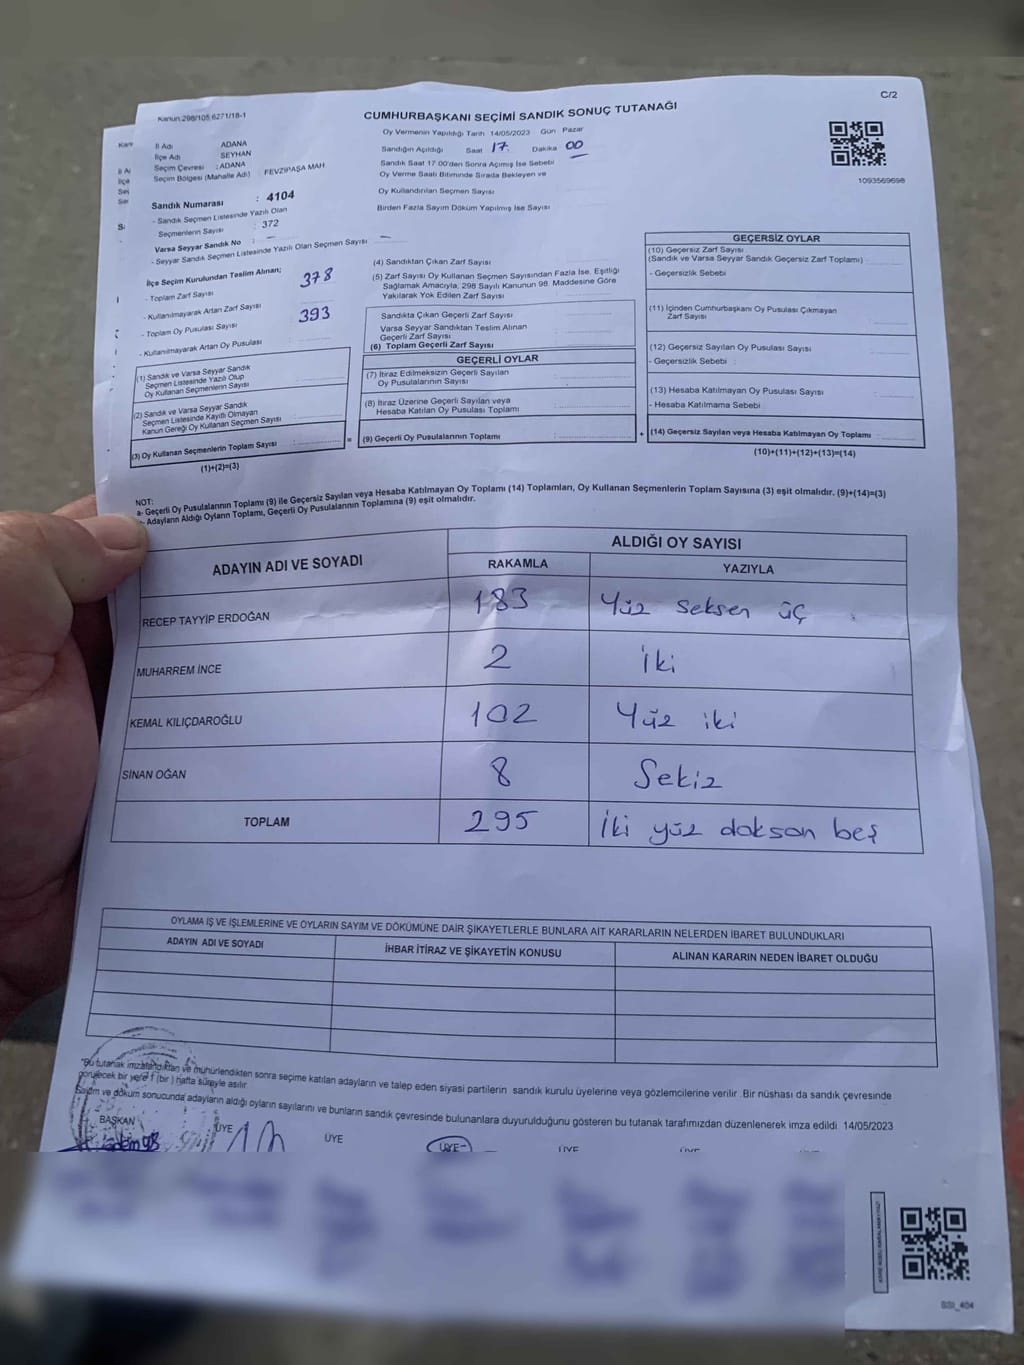 C/2
Kanun:298/105,6271/18-1
CUMHURBAŞKANI SEÇİMİ SANDIK SONUÇ TUTANAĞI
İl Adı : ADANA
İlçe Adı SEYHAN
Seçim Çevresi : ADANA
Seçim Bölgesi (Mahalle Adı) : FEVZİPAŞA MAH
Sandık Numarası : 4104
- Sandık Seçmen Listesinde Yazılı Olan
Seçmenlerin Sayısı : 372
Varsa Seyyar Sandık No : –
- Seyyar Sandık Seçmen Listesinde Yazılı Olan Seçmen Sayısı –
İlçe Seçim Kurulundan Teslim Alınan;
- Toplam Zarf Sayısı 378
- Kullanılmayarak Artan Zarf Sayısı
- Toplam Oy Pusulası Sayısı 393
- Kullanılmayarak Artan Oy Pusulası
Oy Vermenin Yapıldığı Tarih 14/05/2023 Gün Pazar
Sandığın Açıldığı Saat 17. Dakika 00
Sandık Saat 17.00'den Sonra Açımış İse Sebebi
Oy Verme Saati Bitiminde Sırada Bekleyen ve
Oy Kullandırılan Seçmen Sayısı
Birden Fazla Sayım Döküm Yapılmış İse Sayısı
1093569698
(1) Sandık ve Varsa Seyyar Sandık
Seçmen Listesinde Yazılı Olup
Oy Kullanan Seçmenlerin Sayısı
(2) Sandık ve Varsa Seyyar Sandık
Seçmen Listesinde Kayıtlı Olmayan
Kanun Gereği Oy Kullanan Seçmen Sayısı
(3) Oy Kullanan Seçmenlerin Toplam Sayısı :
(1)+(2)=(3)
=
(4) Sandıktan Çıkan Zarf Sayısı
(5) Zarf Sayısı Oy Kullanan Seçmen Sayısından Fazla İse, Eşitliği
Sağlamak Amacıyla, 298 Sayılı Kanunun 98. Maddesine Göre
Yakılarak Yok Edilen Zarf Sayısı
Sandıkta Çıkan Geçerli Zarf Sayısı
Varsa Seyyar Sandıktan Teslim Alınan
Geçerli Zarf Sayısı
(6) Toplam Geçerli Zarf Sayısı
GEÇERLİ OYLAR
(7) İtiraz Edilmeksizin Geçerli Sayılan
Oy Pusulalarının Sayısı
(8) İtiraz Üzerine Geçerli Sayılan veya
Hesaba Katılan Oy Pusulası Toplamı
(9) Geçerli Oy Pusulalarının Toplamı
+
GEÇERSİZ OYLAR
(10) Geçersiz Zarf Sayısı
(Sandık ve Varsa Seyyar Sandık Geçersiz Zarf Toplamı)
- Geçersizlik Sebebi
(11) İçinden Cumhurbaşkanı Oy Pusulası Çıkmayan
Zarf Sayısı
(12) Geçersiz Sayılan Oy Pusulası Sayısı
- Geçersizlik Sebebi :
(13) Hesaba Katılmayan Oy Pusulası Sayısı
- Hesaba Katılmama Sebebi
(14) Geçersiz Sayılan veya Hesaba Katılmayan Oy Toplamı
(10)+(11)+(12)+(13)=(14)
NOT:
a- Geçerli Oy Pusulalarının Toplamı (9) ile Geçersiz Sayılan veya Hesaba Katılmayan Oy Toplamı (14) Toplamları, Oy Kullanan Seçmenlerin Toplam Sayısına (3) eşit olmalıdır. (9)+(14)=(3)
Adayların Aldığı Oyların Toplamı, Geçerli Oy Pusulalarının Toplamına (9) eşit olmalıdır.
ADAYIN ADI VE SOYADI ALDIĞI OY SAYISI
RAKAMLA YAZIYLA
RECEP TAYYİP ERDOĞAN 183 Yüz seksen üç
MUHARREM İNCE 2 iki
KEMAL KILIÇDAROĞLU 102 Yüz iki
SİNAN OĞAN 8 Sekiz
TOPLAM 295 iki yüz doksan beş
OYLAMA İŞ VE İŞLEMLERİNE VE OYLARIN SAYIM VE DÖKÜMÜNE DAİR ŞİKAYETLERLE BUNLARA AİT KARARLARIN NELERDEN İBARET BULUNDUKLARI
ADAYIN ADI VE SOYADI İHBAR İTİRAZ VE ŞİKAYETİN KONUSU ALINAN KARARIN NEDEN İBARET OLDUĞU
"Bu tutanak imzalandıktan ve mühürlendikten sonra seçime katılan adayların ve talep eden siyasi partilerin sandık kurulu üyelerine veya gözlemcilerine verilir. Bir nüshası da sandık çevresinde
görülecek bir yere 1 (bir) hafta süreyle asılır.
Sayım ve döküm sonucunda adayların aldığı oyların sayılarını ve bunların sandık çevresinde bulunanlara duyurulduğunu gösteren bu tutanak tarafımızdan düzenlenerek imza edildi 14/05/2023
BAŞKAN ÜYE ÜYE ÜYE ÜYE ÜYE
SSI_404